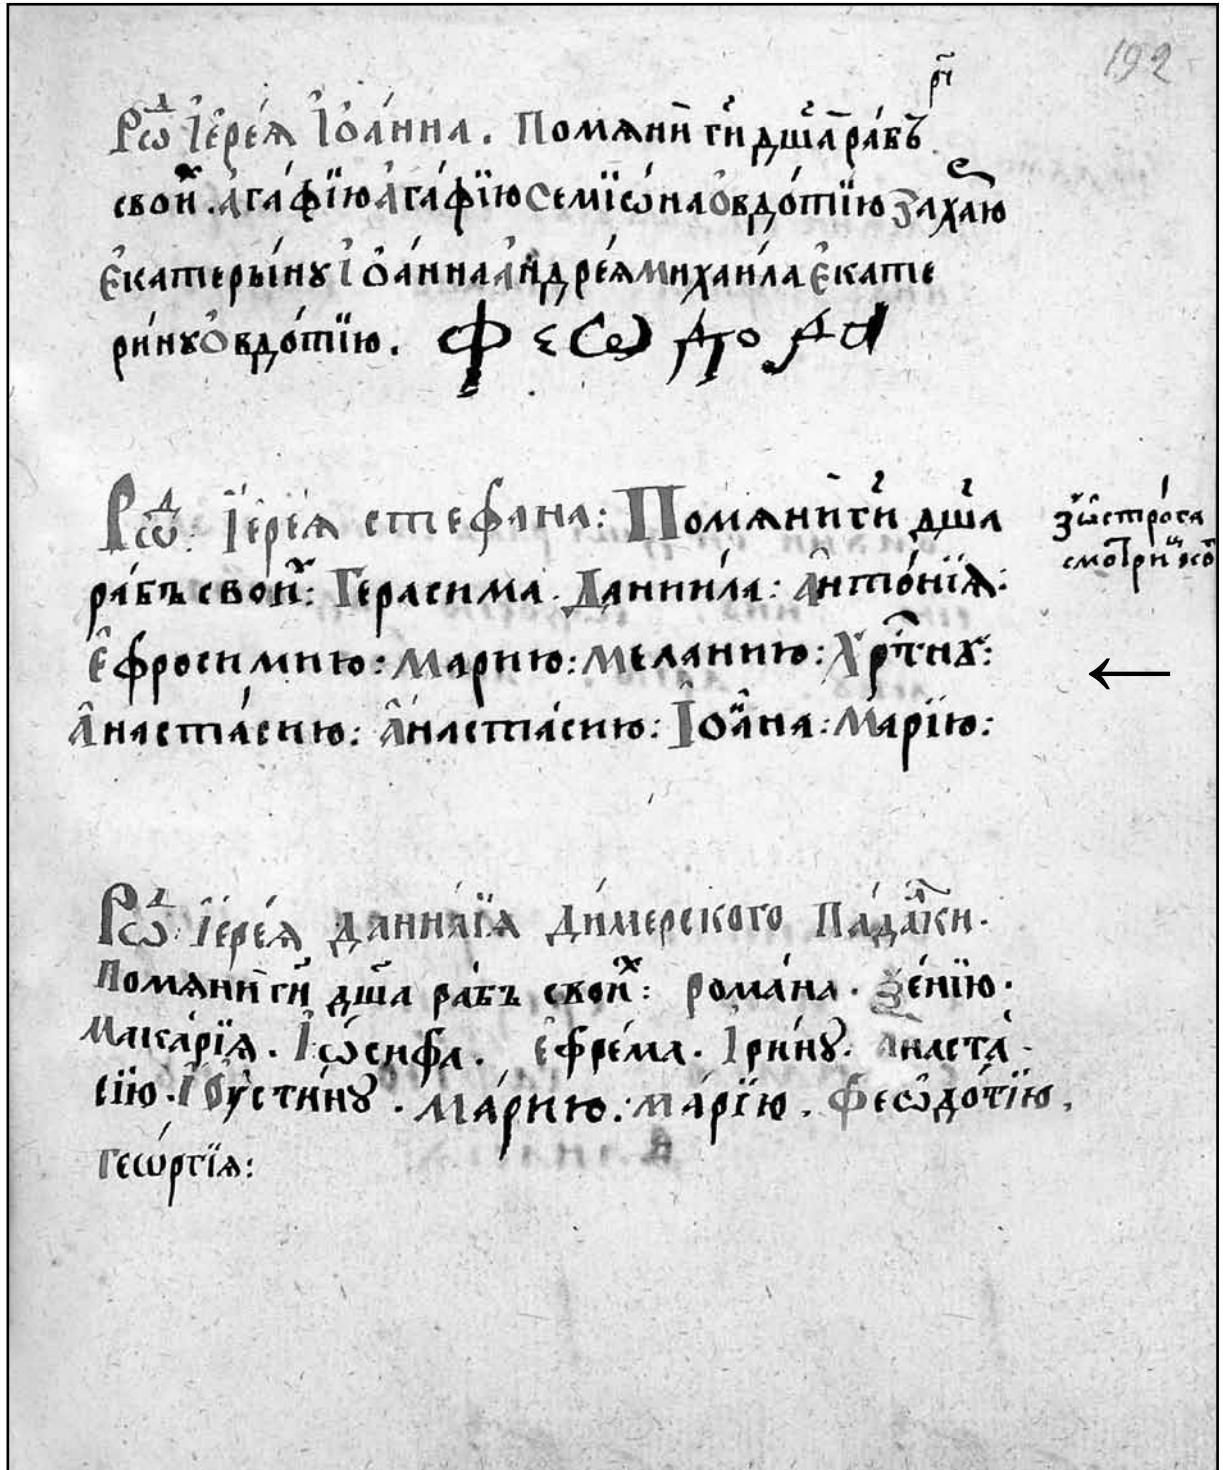 192
Рѡⷣ Іерéѧ Іѡáнна. Помѧни гн҃и дш҃а рáбъ
свои́ⷯ. Агáфїю Агáфїю Семїѡ́на Ѻвдóтїю Захаⷬ҇ю
Екатеры́нꙋ Іѻáнна Андрéѧ Михаи́ла Екате
ри́нꙋ Ѻвдóтїю.
Рѡⷣ: Іерéѧ стефана: Помѧни гн҃и дш҃а
рáбъ своиⷯ: Герасима. Даниила: Антóнїѧ:
Ефросимию: Марию: Меланию: Хрⷭ҇тинꙋ:
Анастáсию: Анастáсию: Іоâна: Марїю:
зъ ѡстрóга
смотрицⸯкоⷢ҇
Рѡⷣ: Іерéѧ Даниїѧ Ди́мерского
Помѧни гн҃и дш҃а рáбъ своиⷯ: Ромáна. Ѯéнїю.
Макáрїѧ. Іѡ́сифа. Ефрéма. Іри́нꙋ. Анастá
сїю. Іꙋсти́нꙋ. Мáрию: Мáрїю. Феѡдóтїю.
Геѡ́ргїѧ: